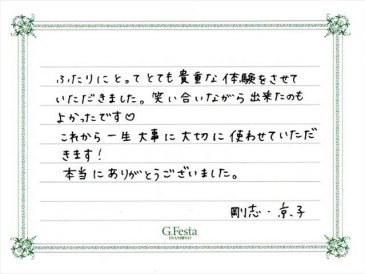 ふたりにとってとても貴重な体験をさせて
いただきました。笑い合いながら出来たのも
よかったです♡
これから一生大事に大切に使わせていただ
きます!
本当にありがとうございました。
剛志・京子
G.Festa
DIAMOND